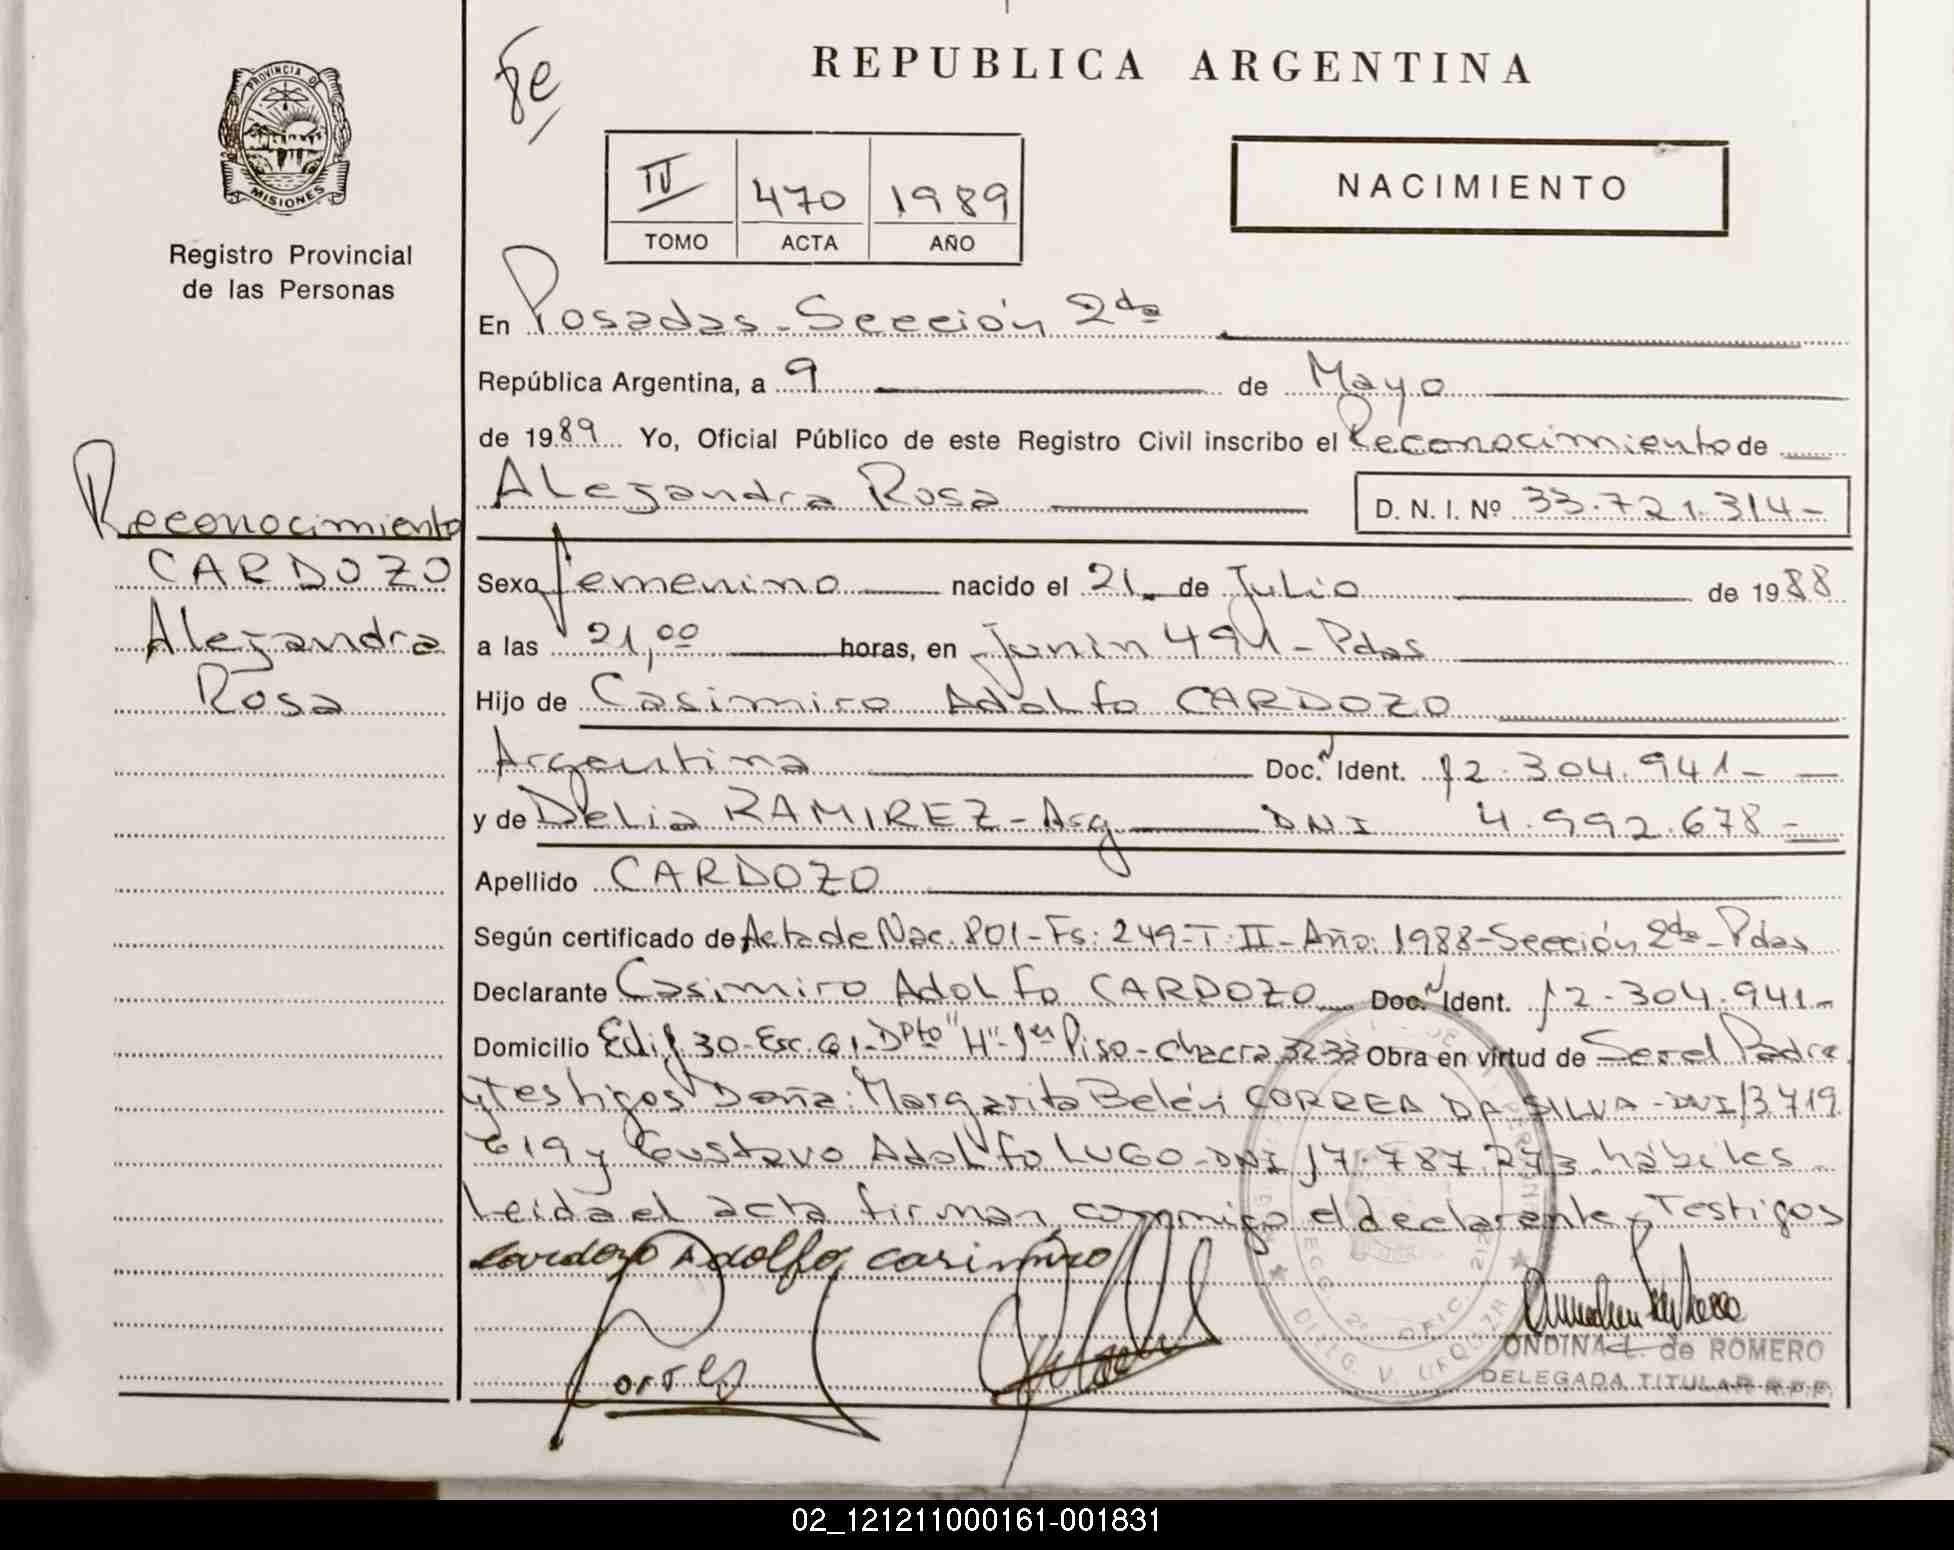 PROVINCIA DE
MISIONES
Registro Provincial
de las Personas
Reconocimiento
CARDOZO
Alejandra
Rosa
REPUBLICA ARGENTINA
IV 470 1989
TOMO ACTA AÑO
NACIMIENTO
En Posadas - Sección 2da
República Argentina, a 9 de Mayo
de 1989 Yo, Oficial Público de este Registro Civil inscribo el Reconocimiento de
Alejandra Rosa D. N. I. Nº 33.721.314-
Sexo femenino nacido el 21 de Julio de 1988
a las 21,00 horas, en Junin 491 - Pdas
Hijo de Casimiro Adolfo CARDOZO
Argentina Doc. Ident. 12.304.941-
y de Delia RAMIREZ - Arg DNI 4.992.678-
Apellido CARDOZO
Según certificado de Acta de Nac. 801 - Fs: 249 - T: II - Año: 1988 - Sección 2da - Pdas
Declarante Casimiro Adolfo CARDOZO Doc. Ident. 12.304.941-
Domicilio Edif 30 - Esc. 61 - Dpto "H" - 1er Piso - Chacra 3233 Obra en virtud de Ser el Padre
y Testigos Doña: Margarita Belén CORREA DA SILVA - DNI 13.719
619 y Gustavo Adolfo LUGO - DNI 17.787.273 hábiles -
Leida el acta firman conmigo el declarante y Testigos
Cardozo Adolfo Casimiro
ONDINA L. de ROMERO
DELEGADA TITULAR R.P.P.
02_121211000161-001831